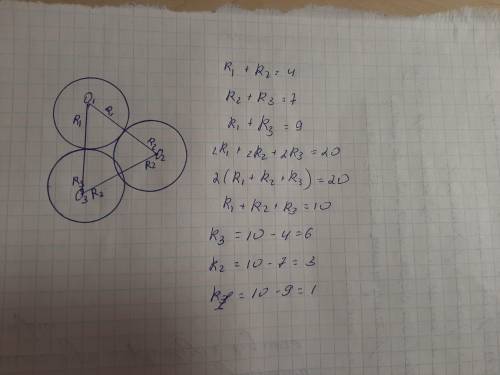 O₁
R₁ R₁
R₂
O₂
R₂
R₃
O₃ R₂
R₁ + R₂ = 4
R₂ + R₃ = 7
R₁ + R₃ = 9
2R₁ + 2R₂ + 2R₃ = 20
2(R₁ + R₂ + R₃) = 20
R₁ + R₂ + R₃ = 10
R₃ = 10 - 4 = 6
R₂ = 10 - 7 = 3
R₁ = 10 - 9 = 1